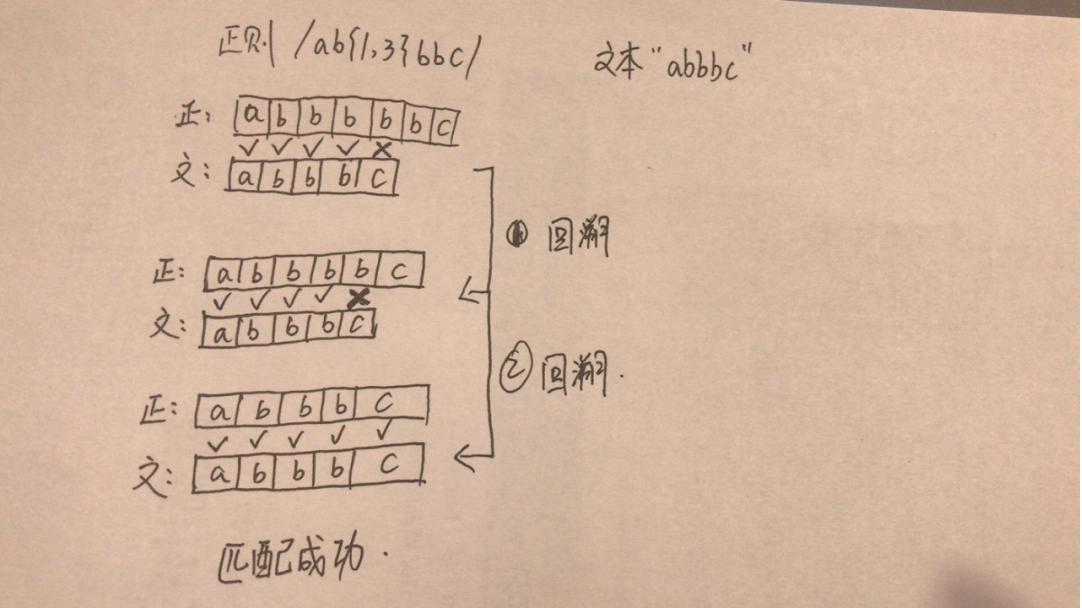 正则 /ab{1,3}bbc/
文本 "abbbc"
正: a b b b b b c
✓ ✓ ✓ ✓ ×
文: a b b b c
① 回溯
正: a b b b b c
✓ ✓ ✓ ✓ ×
文: a b b b c
② 回溯.
正: a b b b c
✓ ✓ ✓ ✓ ✓
文: a b b b c
匹配成功.